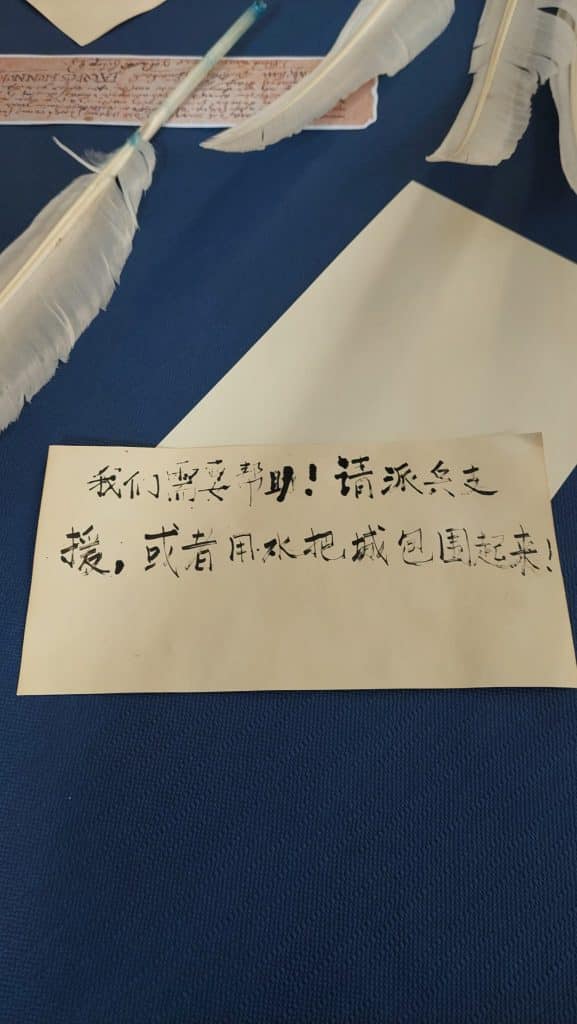 我们需要帮助！请派兵支
援，或者用水把城包围起来！